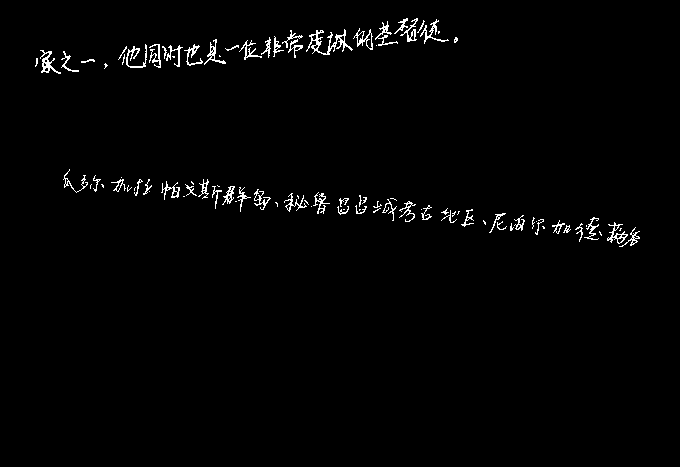 家之一，他同时也是一位非常虔诚的基督徒。
瓜多尔加拉帕戈斯群岛、秘鲁昌昌城考古地区、尼泊尔加德满都